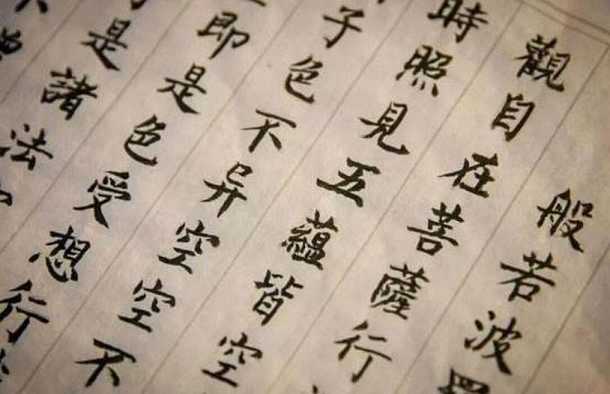 般若波羅
觀自在菩薩行
時照見五蘊皆空
子色不异空空不
即是色受想行
是諸法